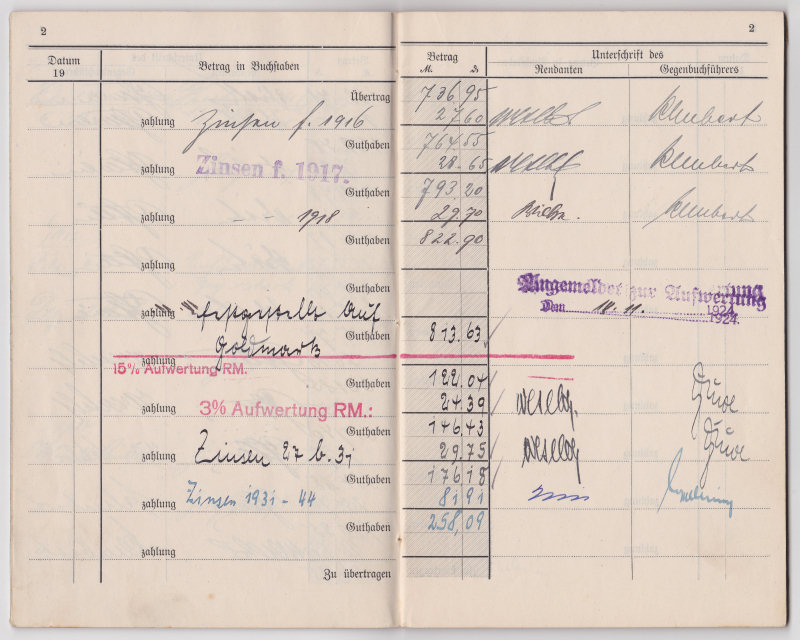 2
2
Datum
19
Betrag in Buchstaben
Betrag
M. ₰
Unterschrift des
Rendanten
Gegenbuchführers
Übertrag 736.95
zahlung Zinsen f. 1916 27.60
Guthaben 764.55
zahlung Zinsen f. 1917. 28.65
Guthaben 793.20
zahlung - - 1918 29.70
Guthaben 822.90
zahlung
Guthaben
Angemeldet zur Aufwertung
Den 18. 11. 1924.
zahlung festgestellt auf
Guthaben Goldmark 813.63
zahlung
15% Aufwertung RM.
Guthaben 122.04
zahlung 3% Aufwertung RM.: 24.39
Guthaben 146.43
zahlung Zinsen 27 b. 31 29.75
Guthaben 176.18
zahlung Zinsen 1931 - 44 81 91
Guthaben 258,09
zahlung
Zu übertragen